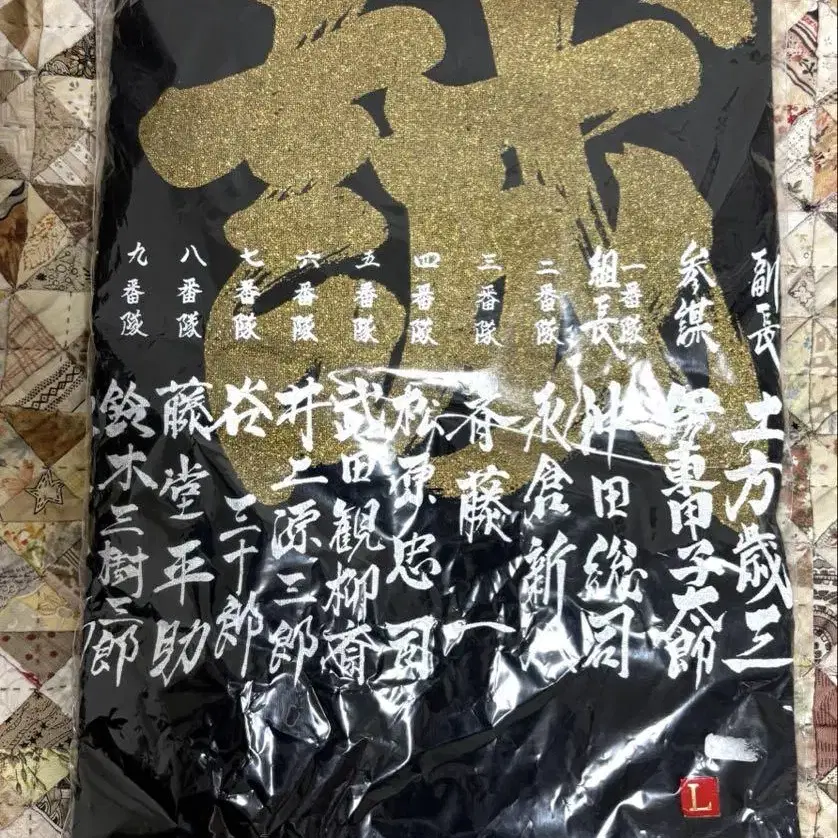 誠
副長 土方歳三
参謀 伊東甲子太郎
組長
一番隊 沖田総司
二番隊 永倉新八
三番隊 斉藤一
四番隊 松原忠司
五番隊 武田観柳斎
六番隊 井上源三郎
七番隊 谷三十郎
八番隊 藤堂平助
九番隊 鈴木三樹三郎
L